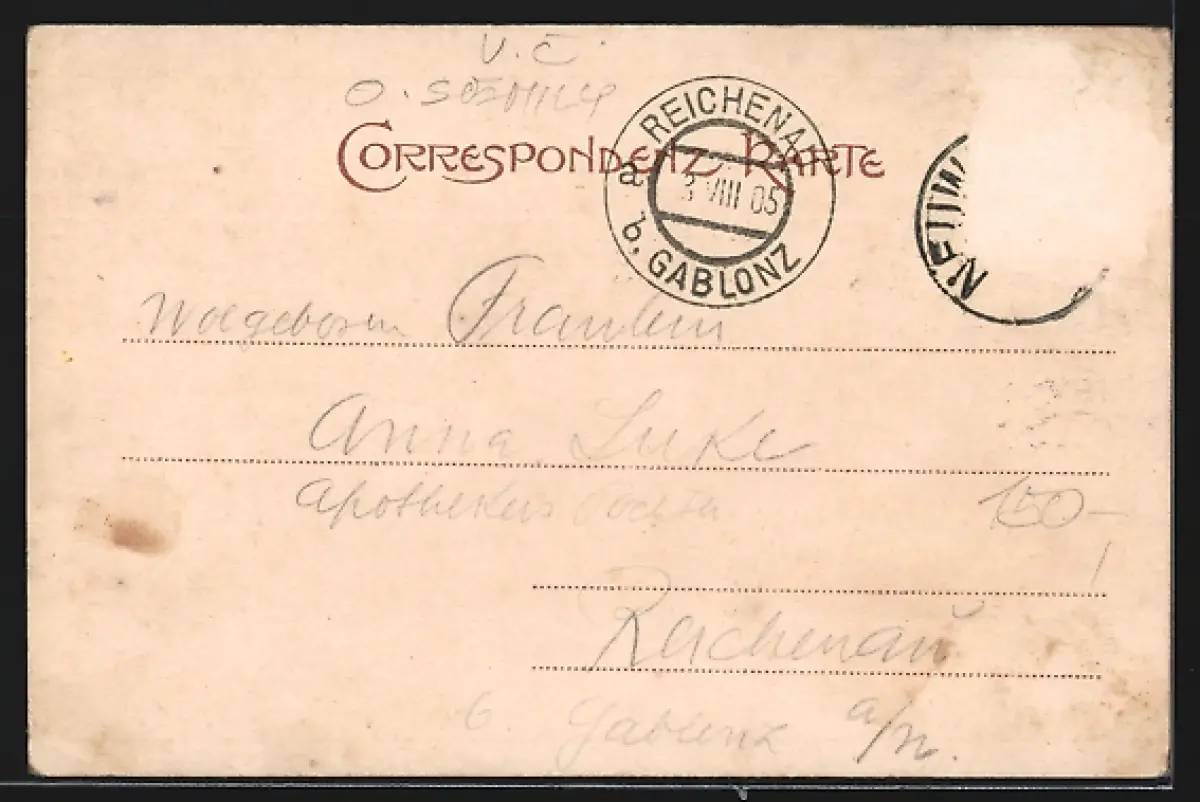 V. Č
CORRESPONDENZ KARTE
REICHENAU
3 VIII 05
b. GABLONZ
Wolgeboren Fräulein
Anna Luke
Apothekers Tochter
150-
Reichenau
b. Gablonz a/N.